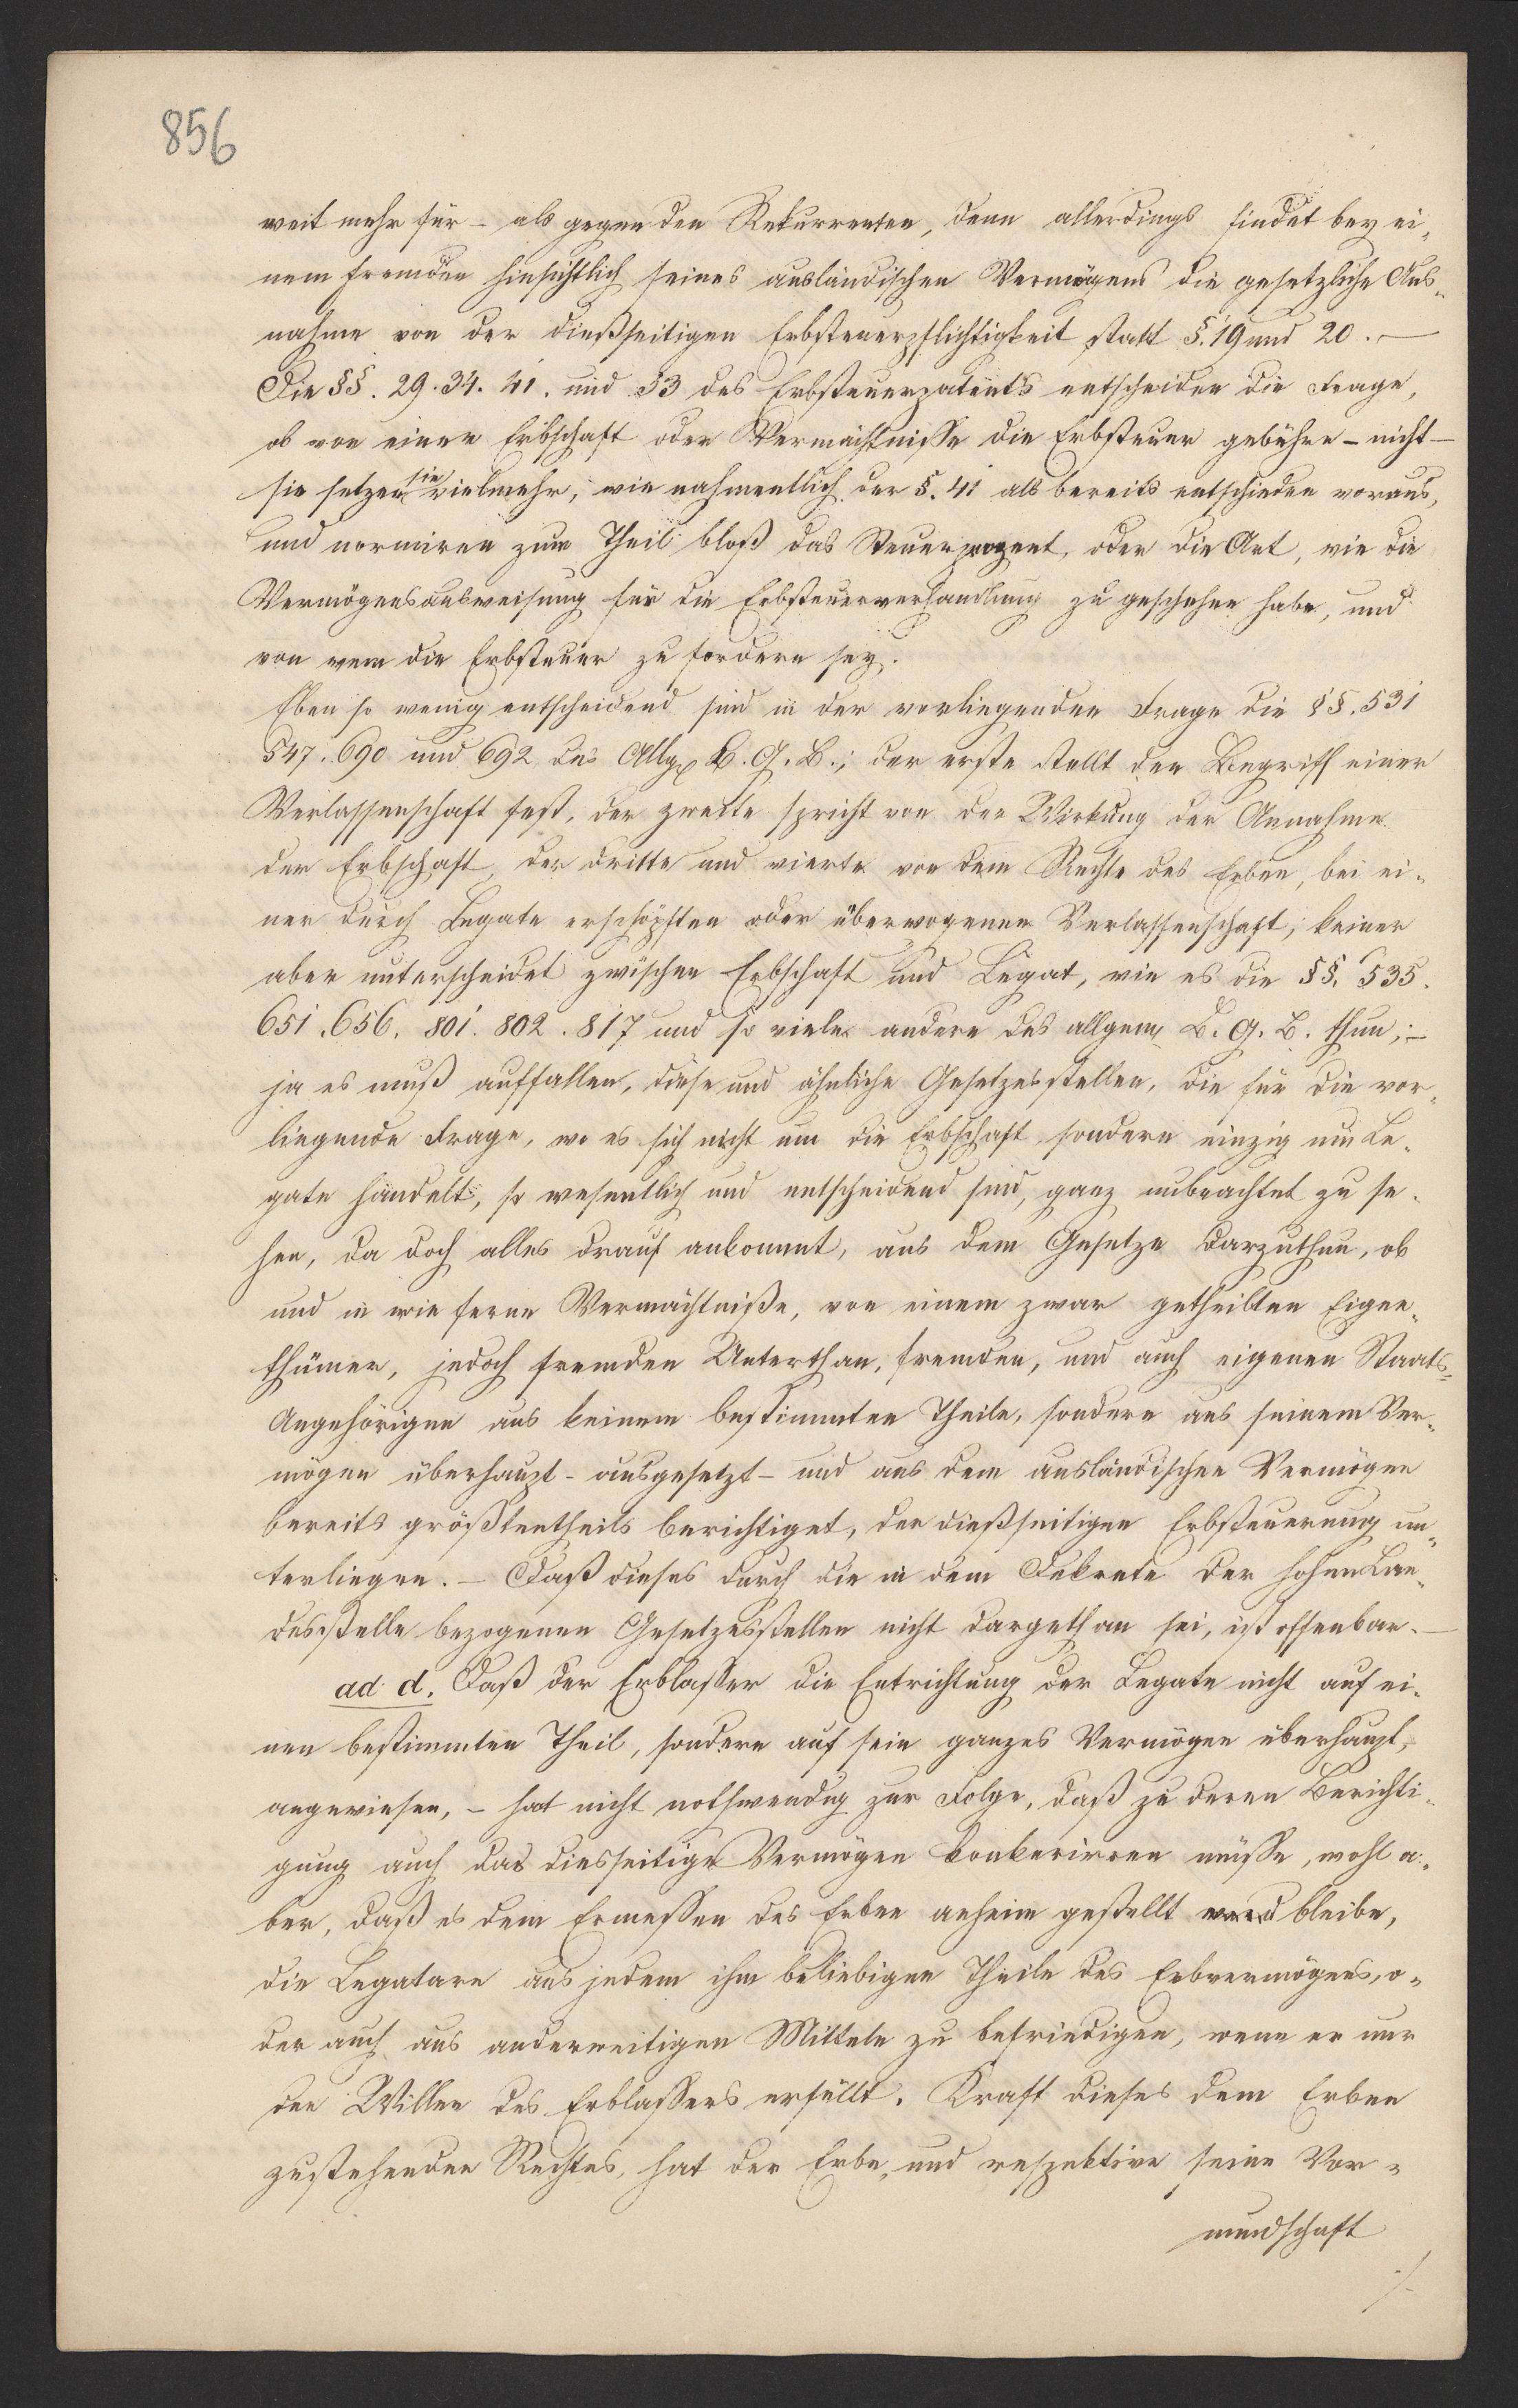 856
weit mehr für – als gegen den Rekurrenten, denn allerdings findet bey ei„
nem Fremden hinsichtlich seines ausländischen Vermögens die gesetzliche Aus„
nahme von der dießseitigen Erbsteuerpflichtigkeit statt §. 19 und 20. –
Die §§. 29. 34. 41. und 53 des Erbsteuerpatents entscheiden die Frage,
ob von einer Erbschaft oder Vermächtnisse die Erbsteuer gebühre – nicht –
sie setzen sie vielmehr, wie nahmentlich der §. 41 als bereits entschieden voraus,
und normiren zum Theil bloß das Steuerprozent, oder die Art, wie die
Vermögensausweisung für die Erbsteuerverhandlung zu geschehen habe, und
von wem die Erbsteuer zu fordern sey.
Eben so wenig entscheidend sind in der vorliegenden Frage die §§. 531
547. 690 und 692 des Allg. B. G. B.; der erste stellt den Begriff einer
Verlassenschaft fest, der zweite spricht von der Wirkung der Annahme
der Erbschaft, der dritte und vierte von dem Rechte des Erben, bei ei„
ner durch Legate erschöpften oder überwogenen Verlassenschaft; keiner
aber unterscheidet zwischen Erbschaft und Legat, wie es die §§. 535.
651. 656. 801. 802. 817 und so viele andere des allgem. B. G. B. thun; –
ja es muß auffallen, diese und ähnliche Gesetzesstellen, die für die vor„
liegende Frage, wo es sich nicht um die Erbschaft, sondern einzig um Le„
gate handelt, so wesentlich und entscheidend sind, ganz unbeachtet zu se„
hen, da doch alles drauf ankommt, aus dem Gesetze darzuthun, ob
und in wie ferne Vermächtniße, von einem zwar getheilten Eigen„
thümer, jedoch fremden Unterthan, fremden, und auch eigenen Staats„
Angehörigen aus keinem bestimmten Theile, sondern aus seinem Ver„
mögen überhaupt – ausgesetzt – und aus dem ausländischen Vermögen
bereits größtentheils berichtiget, der dießseitigen Erbsteuerung un„
terliegen. – Daß dieses durch die in dem Dekrete der hohen Lan„
desstelle bezogenen Gesetzesstellen nicht dargethan sei, ist offenbar. –
ad d. Daß der Erblasser die Entrichtung der Legate nicht auf ei„
nen bestimmten Theil, sondern auf sein ganzes Vermögen überhaupt,
angewiesen, – hat nicht nothwendig zur Folge, daß zu deren Berichti„
gung auch das diesseitige Vermögen konkuriren müsse, wohl a„
ber, daß es dem Ermessen des Erben anheim gestellt bleibe,
die Legatare aus jedem ihm beliebigen Theile des Erbvermögens, o„
der auch aus anderweitigen Mitteln zu befriedigen, wenn er nur
den Willen des Erblassers erfüllt. Kraft dieses dem Erben
zustehenden Rechtes, hat der Erbe, und respektive seine Vor„
mundschaft